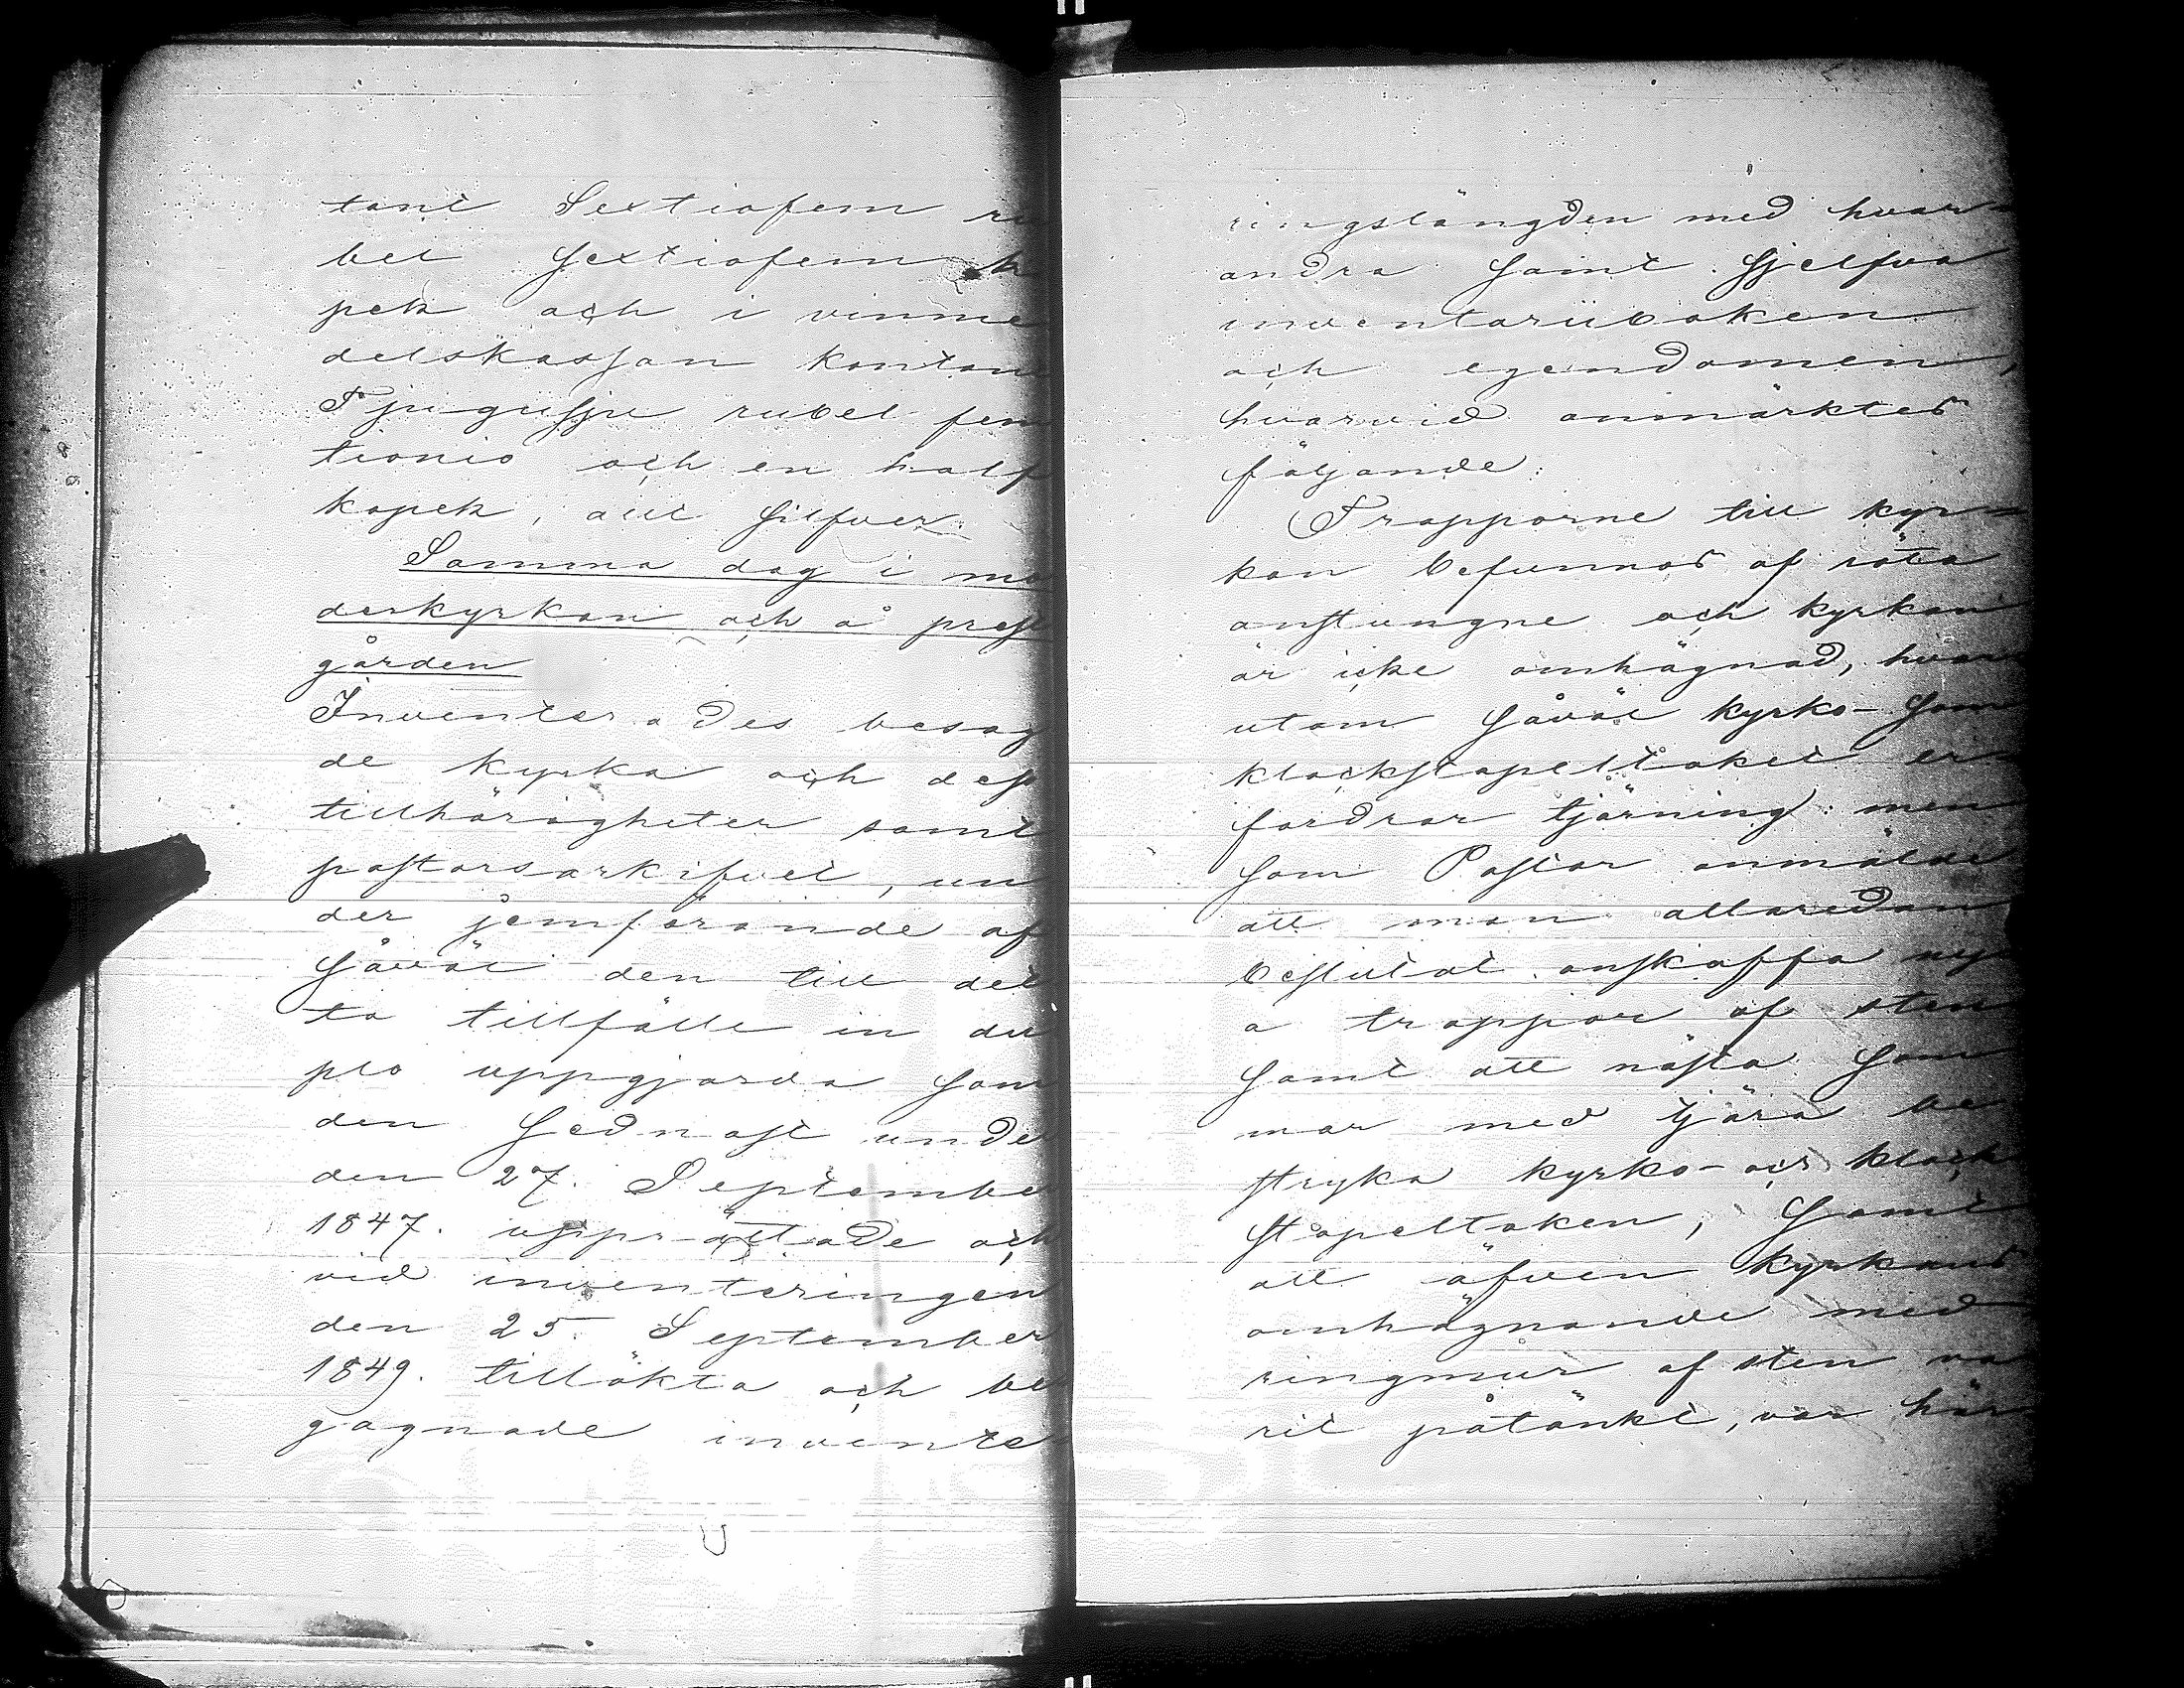 tant Sextiofem ru
bel Sextiofem k
pek och i vinme
delskassan kontant
Tjugusju rubel fem
tionio och en half
kopek, allt Silfver.
Samma dag i mo
derkyrkan och å prest
gården
Inventerades besag
de kyrka och dess
tillhörigheter samt
pastorsarkifvet, un
der jemförande af
Såväl den till det
ta tillfälle in du
plo uppgjorda Som
den Sednast unde
den 27. September
1847. upprättade och
vid inventeringen
den 25. September
1849. tillökta och be
gagnade invente
ringslängden med hvar-
andra Samt Sjelfva
inventariiboken
och egendomen,
hvarvid anmärktes
följande:
Trapporne till kyr-
kan befunnos af röta
anstungne och kyrkan
är icke omhägnad, hvar
utom Såväl kyrko- Som
klockstapeltaket er-
fordrar tjärning: men
Som Pastor anmälde
att man allaredan
beslutat anskaffa ny
a trappor af sten
Samt att nästa Som
mar med tjära be
stryka kyrko- och klock
stapeltaken, Samt
att äfven kyrkans
omhägnande med
ringmur af sten va
rit påtänkt, var här